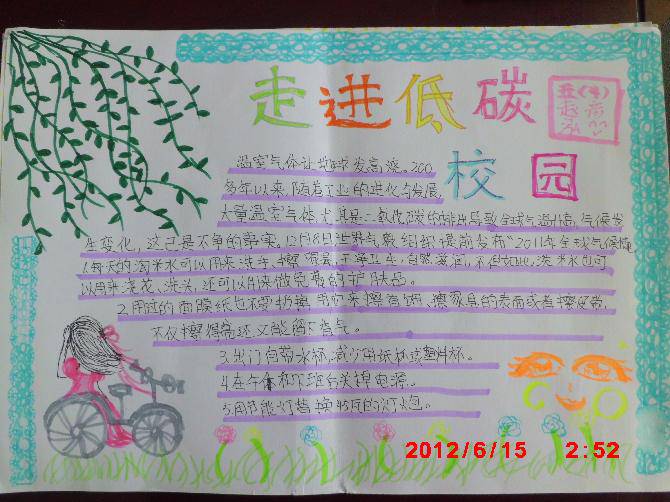 走进低碳
校园
五(4)
温室气体让地球发高烧。200
多年以来,随着工业的进化与发展,
大量温室气体尤其是二氧化碳的排放导致全球气温升高,气候发
生变化,这已是不争的事实。12月8日世界气象组织提前发布“2011年全球气候
1.每天的淘米水可以用来洗手、擦家具,干净卫生,自然滋润,不但如此,洗米水也可
以用来浇花、洗头,还可以用来做免费的护肤品。
2.用过的面膜纸也不要扔掉,用它来擦首饰、擦家具的表面或者擦皮带,
不仅擦得亮还又能留下香气。
3.出门自带水杯,减少用纸杯或塑料杯。
4.在午休和下班后关掉电源。
5.用节能灯替换 瓦的灯炮。
2012/6/15 2:52